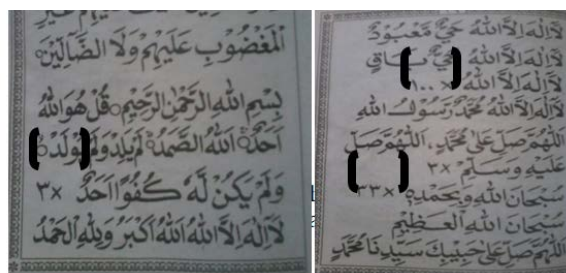 عَلَيْهِمْ غَيْرِ
الْمَغْضُوبِ عَلَيْهِمْ وَلَا الضَّالِّيْنَ
بِسْمِ اللهِ الرَّحْمٰنِ الرَّحِيْمِ ○ قُلْ هُوَ اللهُ
اَحَدٌ ○ اَللهُ الصَّمَدُ ○ لَمْ يَلِدْ وَلَمْ يُوْلَدْ ○
وَلَمْ يَكُنْ لَهُ كُفُوًا اَحَدٌ ×٣
لَاۤاِلٰهَ اِلَّا اللهُ اَللهُ اَكْبَرُ وَلِلّٰهِ الْحَمْدُ
لَاۤاِلٰهَ اِلَّا اللهُ حَيٌّ مَعْبُوْدٌ
لَاۤاِلٰهَ اِلَّا اللهُ حَيٌّ بَاقٍ
لَاۤاِلٰهَ اِلَّا اللهُ × ١٠٠
لَاۤاِلٰهَ اِلَّا اللهُ مُحَمَّدٌ رَسُوْلُ اللهِ
اَللّٰهُمَّ صَلِّ عَلٰى مُحَمَّدٍ، اَللّٰهُمَّ صَلِّ
عَلَيْهِ وَسَلِّمْ ×٣
سُبْحَانَ اللهِ وَبِحَمْدِهِ ×٣٣
سُبْحَانَ اللهِ الْعَظِيْمِ
اَللّٰهُمَّ صَلِّ عَلٰى حَبِيْبِكَ سَيِّدِنَا مُحَمَّدٍ